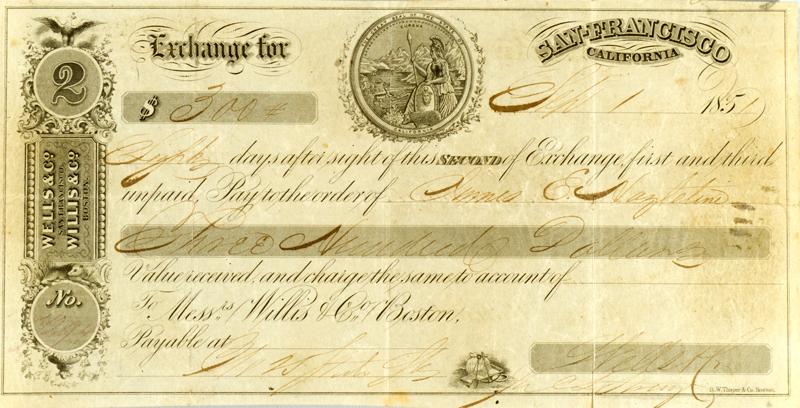 Exchange for
SAN-FRANCISCO
CALIFORNIA
2
THE GREAT SEAL OF THE STATE
EUREKA
CALIFORNIA
$ 300
Sept 1 1851
days after sight of this SECOND of Exchange, first and third
unpaid, Pay to the order of James E. Hazeltine
Three Hundred Dollars
WELLS & Co.
SAN FRANCISCO.
WILLIS & Co.
BOSTON.
Value received, and charge the same to account of
No.
To Messrs. Willis & Co. Boston,
Payable at
G.W. Thayer & Co. Boston.